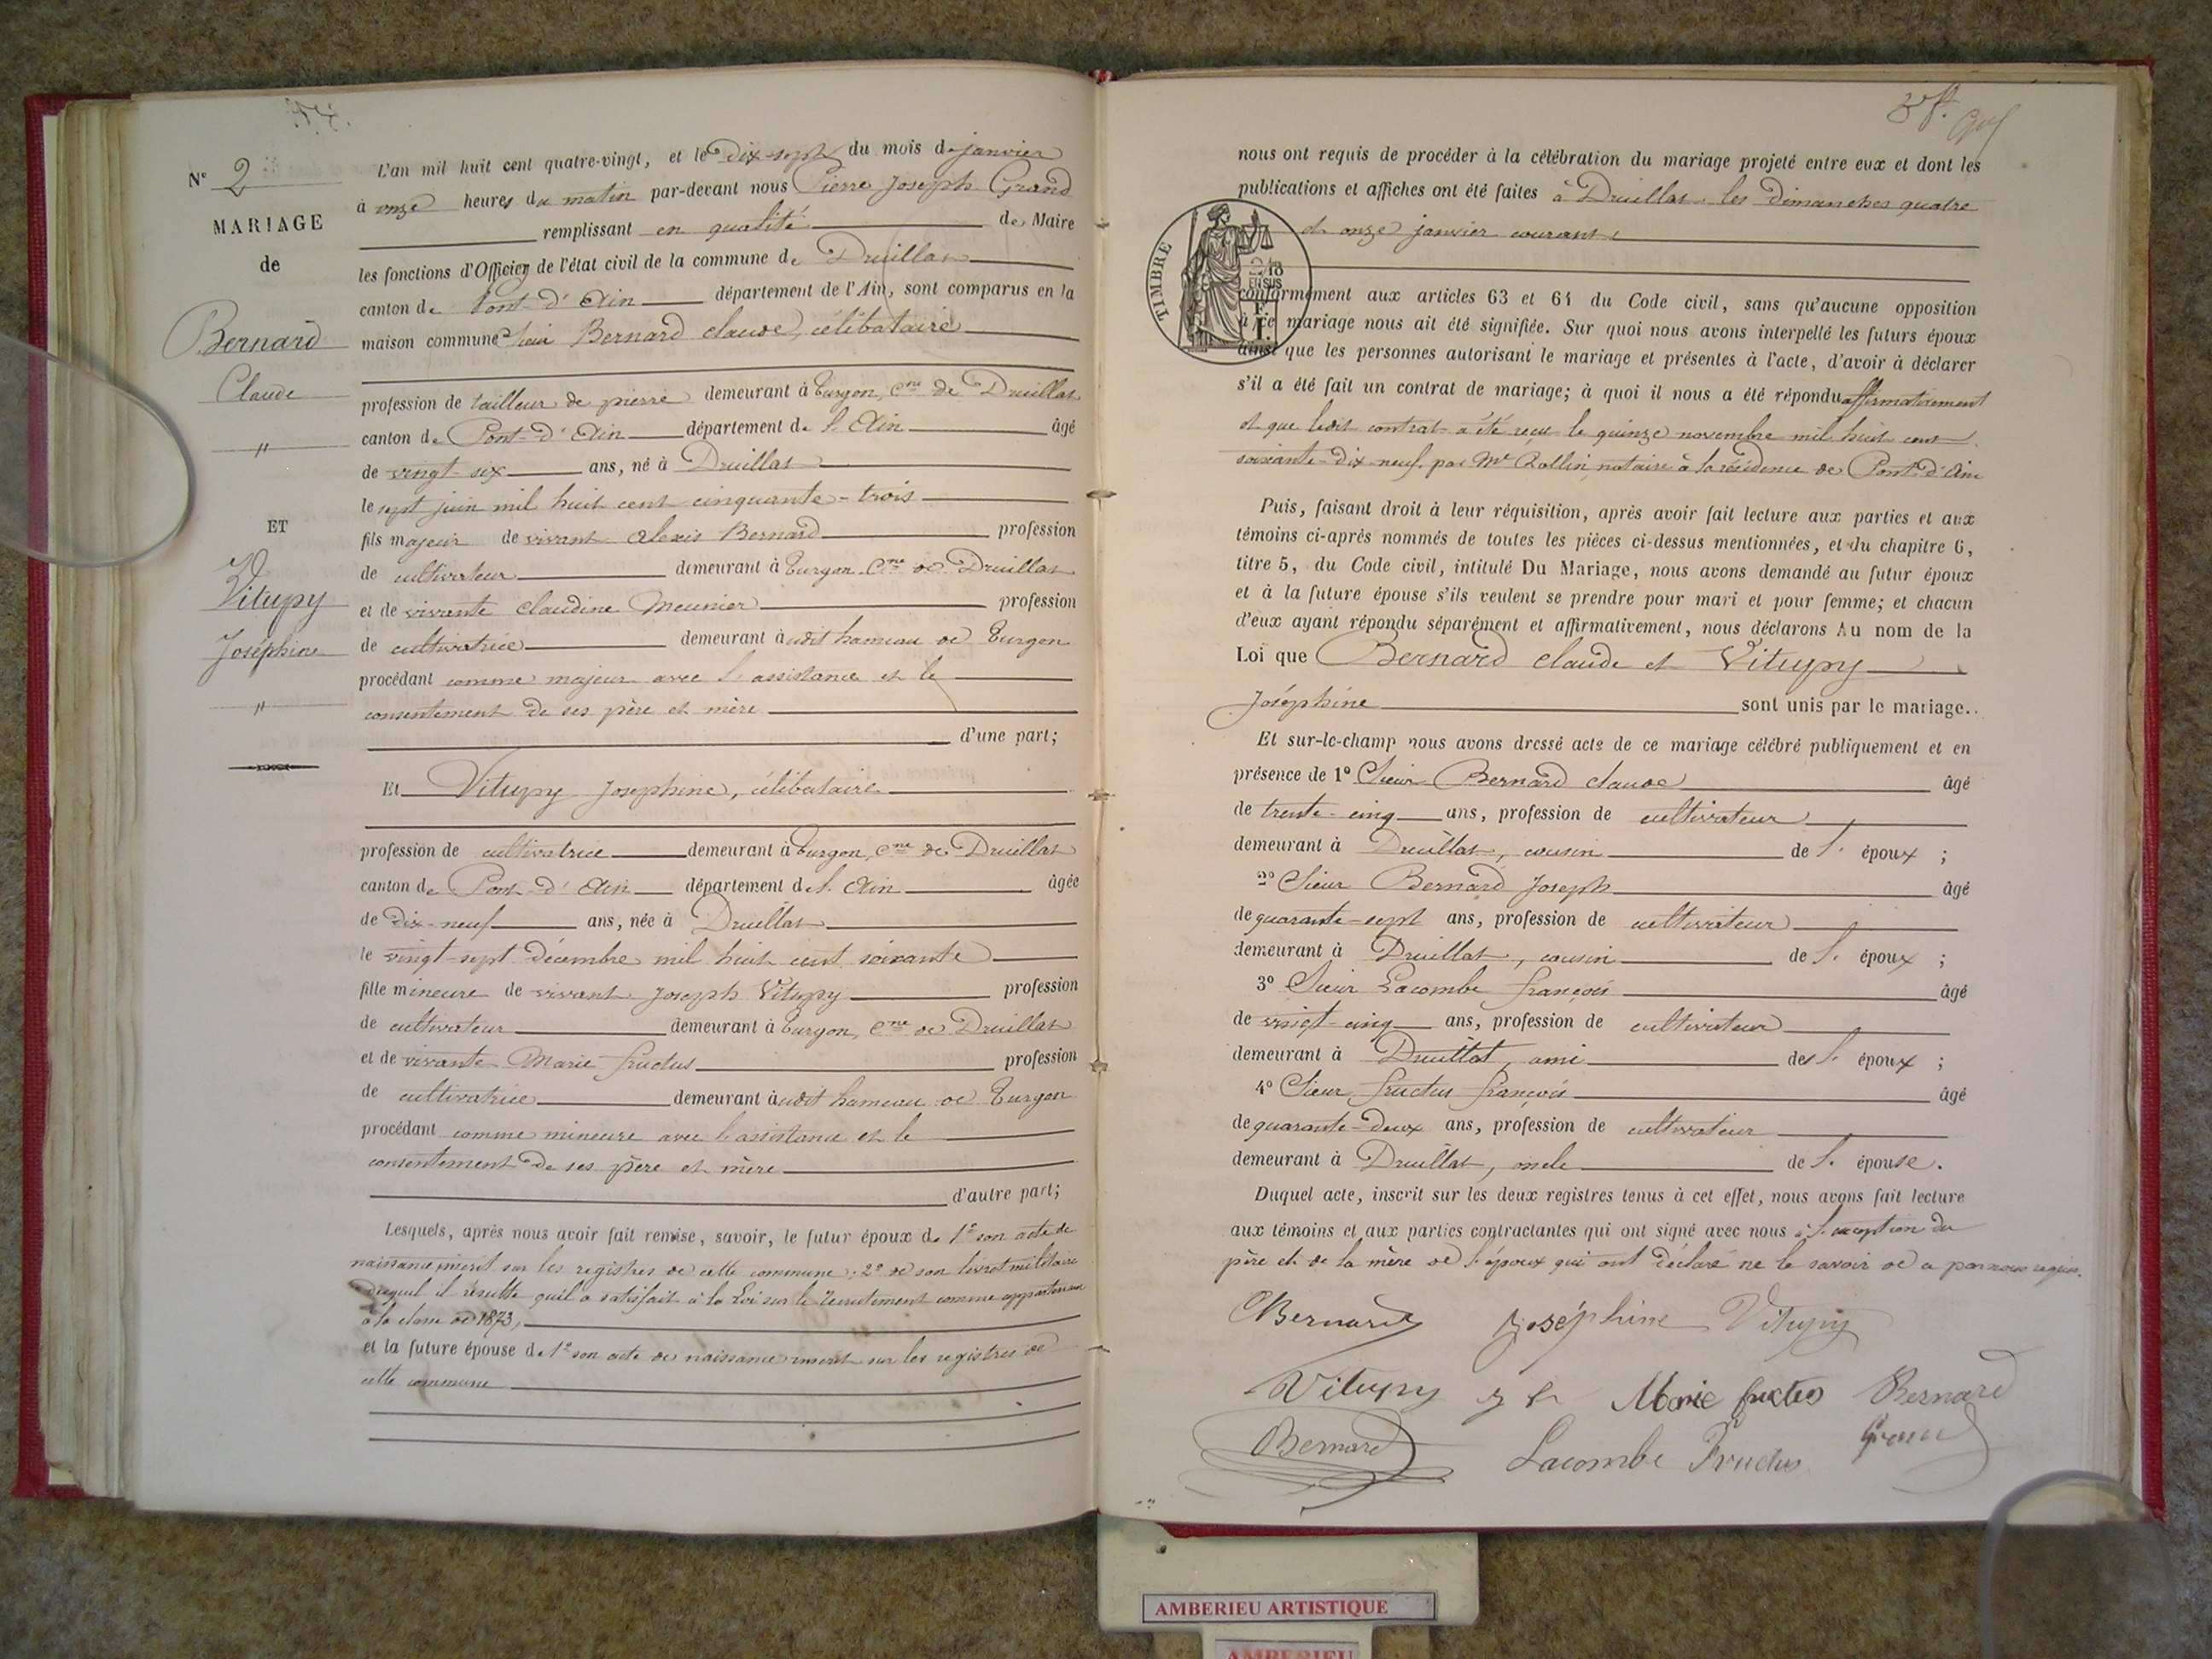 N° 2
MARIAGE
de
Bernard
Claude
"
ET
Vitupy
Joséphine
"
L'an mil huit cent quatre-vingt, et le Dix-sept du mois de janvier
à onze heures du matin par-devant nous Pierre Joseph Grand
remplissant en qualité de Maire
les fonctions d'Officier de l'état civil de la commune de Druillat
canton de Pont-d'Ain département de l'Ain, sont comparus en la
maison commune Sieur Bernard Claude, célibataire
profession de tailleur de pierre demeurant à Turgon, Cne de Druillat
canton de Pont-d'Ain département de l'Ain âgé
de vingt-six ans, né à Druillat
le sept juin mil huit cent cinquante-trois
fils majeur de vivant Alexis Bernard profession
de cultivateur demeurant à Turgon Cne de Druillat
et de vivante Claudine Meunier profession
de cultivatrice demeurant à udit hameau de Turgon
procédant comme majeur avec l'assistance et le
consentement de ses père et mère
d'une part;
Et Vitupy Joséphine, célibataire
profession de cultivatrice demeurant à Turgon, Cne de Druillat
canton de Pont-d'Ain département de l'Ain âgée
de dix-neuf ans, née à Druillat
le vingt-sept décembre mil huit cent soixante
fille mineure de vivant Joseph Vitupy profession
de cultivateur demeurant à Turgon, Cne de Druillat
et de vivante Marie Fructus profession
de cultivatrice demeurant à udit hameau de Turgon
procédant comme mineure avec l'assistance et le
consentement de ses père et mère
d'autre part;
Lesquels, après nous avoir fait remise, savoir, le futur époux de 1° son acte de
naissance inscrit sur les registres de cette commune; 2° de son livret militaire
duquel il résulte qu'il a satisfait à la Loi sur le recrutement comme appartenant
à la classe de 1873,
et la future épouse de 1° son acte de naissance inscrit sur les registres de
cette commune
nous ont requis de procéder à la célébration du mariage projeté entre eux et dont les
publications et affiches ont été faites à Druillat, les Dimanches quatre
et onze janvier courant
TIMBRE
conformément aux articles 63 et 64 du Code civil, sans qu'aucune opposition
à ce mariage nous ait été signifiée. Sur quoi nous avons interpellé les futurs époux
ainsi que les personnes autorisant le mariage et présentes à l'acte, d'avoir à déclarer
s'il a été fait un contrat de mariage; à quoi il nous a été répondu affirmativement
et que ledit contrat a été reçu le quinze novembre mil huit cent
soixante-dix-neuf par Me Rollin, notaire à la résidence de Pont-d'Ain
Puis, faisant droit à leur réquisition, après avoir fait lecture aux parties et aux
témoins ci-après nommés de toutes les pièces ci-dessus mentionnées, et du chapitre 6,
titre 5, du Code civil, intitulé Du Mariage, nous avons demandé au futur époux
et à la future épouse s'ils veulent se prendre pour mari et pour femme; et chacun
d'eux ayant répondu séparément et affirmativement, nous déclarons Au nom de la
Loi que Bernard Claude et Vitupy
Joséphine sont unis par le mariage.
Et sur-le-champ nous avons dressé acte de ce mariage célébré publiquement et en
présence de 1° Sieur Bernard Claude âgé
de trente-cinq ans, profession de cultivateur
demeurant à Druillat, cousin de l'époux ;
2° Sieur Bernard Joseph âgé
de quarante-sept ans, profession de cultivateur
demeurant à Druillat, cousin de l'époux ;
3° Sieur Lacombe François âgé
de vingt-cinq ans, profession de cultivateur
demeurant à Druillat, ami de l'époux ;
4° Sieur Fructus François âgé
de quarante-deux ans, profession de cultivateur
demeurant à Druillat, oncle de l'épouse.
Duquel acte, inscrit sur les deux registres tenus à cet effet, nous avons fait lecture
aux témoins et aux parties contractantes qui ont signé avec nous à l'exception du
père et de la mère de l'époux qui ont déclaré ne le savoir de ce par nous requis.
Bernard Joséphine Vitupy
Vitupy Marie fructus Bernard
Bernard Lacombe Fructus Grand
AMBERIEU ARTISTIQUE
AMBERIEU